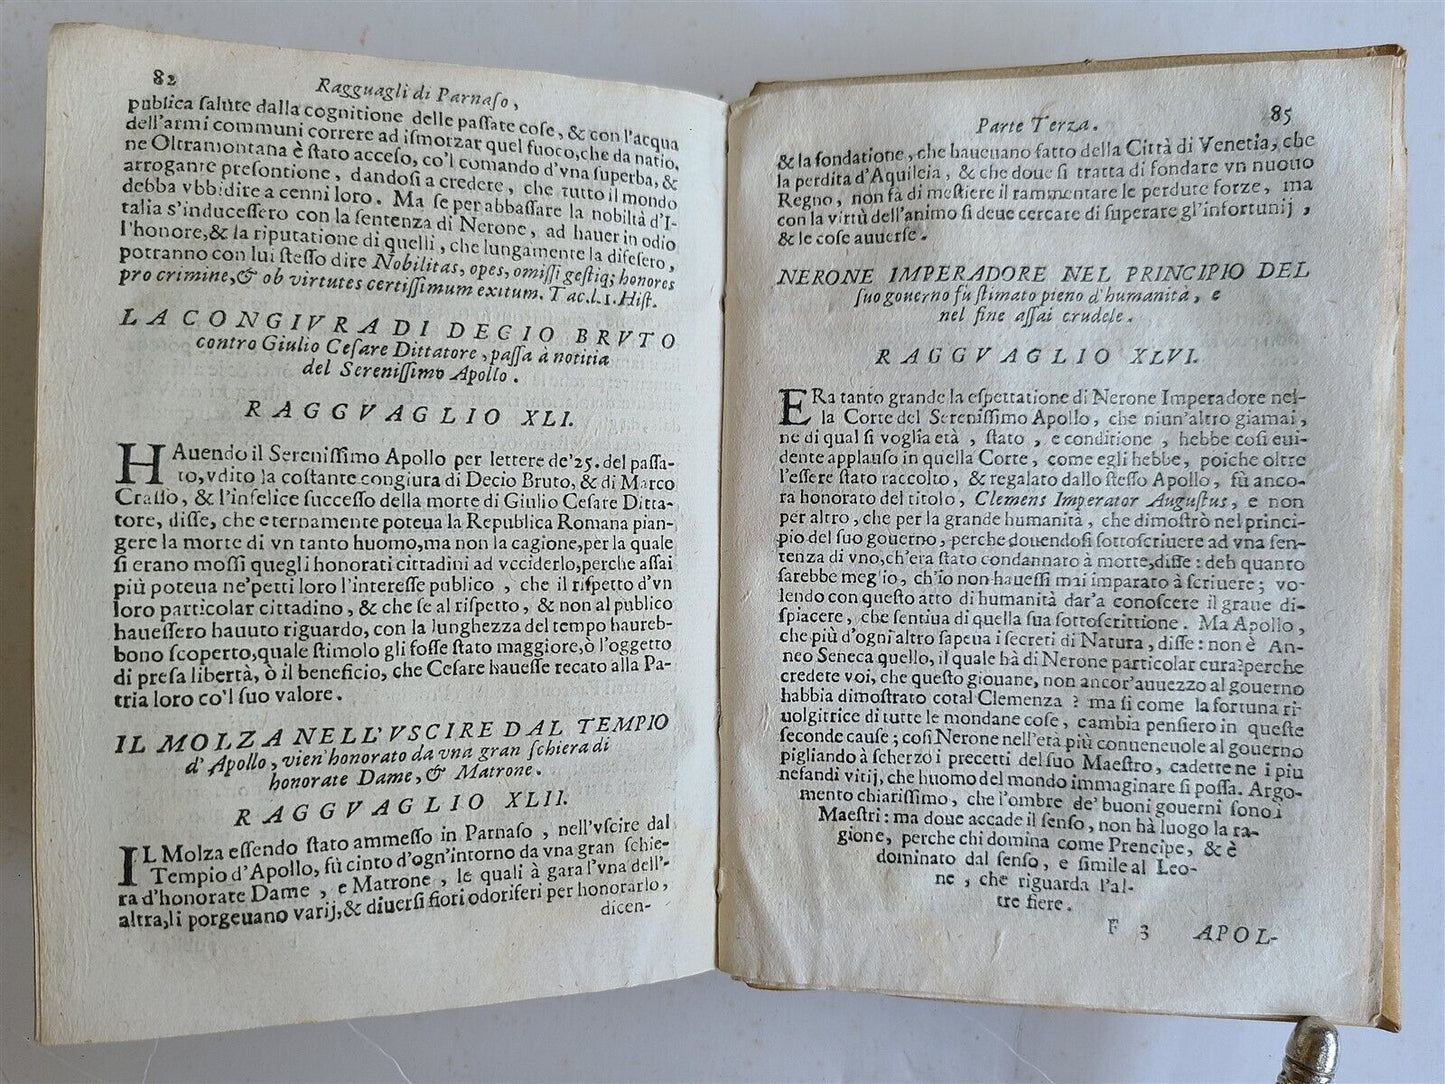 82
Ragguagli di Parnaſo,
publica ſalute dalla cognitione delle paſſate coſe, & con l'acqua
dell'armi communi correre ad iſmorzar quel fuoco, che da natio.
ne Oltramontana è ſtato acceſo, co'l comando d'vna ſuperba, &
arrogante preſontione, dandoſi a credere, che tutto il mondo
debba vbbidire a cenni loro. Ma ſe per abbaſſare la nobiltà d'I-
talia s'induceſſero con la ſentenza di Nerone, ad hauer in odio
l'honore, & la riputatione di quelli, che lungamente la difeſero,
potranno con lui ſteſſo dire Nobilitas, opes, omiſſi geſtiq; honores
pro crimine, & ob virtutes certiſſimum exitum. Tac. l. 1. Hiſt.
LA CONGIVRA DI DECIO BRVTO
contro Giulio Ceſare Dittatore, paſſa à notitia
del Sereniſſimo Apollo.
RAGGVAGLIO XLI.
HAuendo il Sereniſſimo Apollo per lettere de'25. del paſſa-
to, vdito la coſtante congiura di Decio Bruto, & di Marco
Craſſo, & l'infelice ſucceſſo della morte di Giulio Ceſare Ditta-
tore, diſſe, che eternamente poteua la Republica Romana pian-
gere la morte di vn tanto huomo, ma non la cagione, per la quale
ſi erano moſſi quegli honorati cittadini ad vcciderlo, perche aſſai
più poteua ne'petti loro l'intereſſe publico, che il riſpetto d'vn
loro particolar cittadino, & che ſe al riſpetto, & non al publico
haueſſero hauuto riguardo, con la lunghezza del tempo haureb-
bono ſcoperto, quale ſtimolo gli foſſe ſtato maggiore, ò l'oggetto
di preſa libertà, ò il beneficio, che Ceſare haueſſe recato alla Pa-
tria loro co'l ſuo valore.
IL MOLZA NELL'VSCIRE DAL TEMPIO
d'Apollo, vien'honorato da vna gran ſchiera di
honorate Dame, & Matrone.
RAGGVAGLIO XLII.
IL Molza eſſendo ſtato ammeſſo in Parnaſo, nell'vſcire dal
Tempio d'Apollo, fù cinto d'ogn'intorno da vna gran ſchie-
ra d'honorate Dame, e Matrone, le quali à gara l'vna dell'-
altra, li porgeuano varij, & diuerſi fiori odoriferi per honorarlo,
dicen-
85
Parte Terza.
& la fondatione, che haueuano fatto della Città di Venetia, che
la perdita d'Aquileia, & che doue ſi tratta di fondare vn nuouo
Regno, non fà di meſtiere il rammentare le perdute forze, ma
con la virtù dell'animo ſi deue cercare di ſuperare gl'infortunij,
& le coſe auuerſe.
NERONE IMPERADORE NEL PRINCIPIO DEL
ſuo gouerno fù ſtimato pieno d'humanità, e
nel fine aſſai crudele.
RAGGVAGLIO XLVI.
ERa tanto grande la eſpettatione di Nerone Imperadore nel-
la Corte del Sereniſſimo Apollo, che niun'altro giamai,
ne di qual ſi voglia età, ſtato, e conditione, hebbe coſi eui-
dente applauſo in quella Corte, come egli hebbe, poiche oltre
l'eſſere ſtato raccolto, & regalato dallo ſteſſo Apollo, fù anco-
ra honorato del titolo, Clemens Imperator Auguſtus, e non
per altro, che per la grande humanità, che dimoſtrò nel princi-
pio del ſuo gouerno, perche douendoſi ſottoſcriuere ad vna ſen-
tenza di vno, ch'era ſtato condannato à morte, diſſe: deh quanto
ſarebbe meglio, ch'io non haueſſi mai imparato à ſcriuere; vo-
lendo con queſto atto di humanità dar'a conoſcere il graue di-
ſpiacere, che ſentiua di quella ſua ſottoſcrittione. Ma Apollo,
che più d'ogni altro ſapeua i ſecreti di Natura, diſſe: non è An-
neo Seneca quello, il quale hà di Nerone particolar cura? perche
credete voi, che queſto giouane, non ancor'auuezzo al gouerno
habbia dimoſtrato cotal Clemenza? ma ſi come la fortuna ri-
uolgitrice di tutte le mondane coſe, cambia penſiero in queſte
ſeconde cauſe; coſi Nerone nell'età più conueneuole al gouerno
pigliando à ſcherzo i precetti del ſuo Maeſtro, cadette ne i piu
nefandi vitij, che huomo del mondo immaginare ſi poſſa. Argo-
mento chiariſſimo, che l'ombre de' buoni gouerni ſono i
Maeſtri: ma doue accade il ſenſo, non hà luogo la ra-
gione, perche chi domina come Prencipe, & è
dominato dal ſenſo, e ſimile al Leo-
ne, che riguarda l'al-
tre fiere.
F 3 APOL-